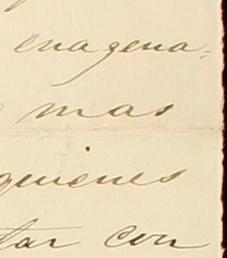 enagena-
mas
quienes
tar con